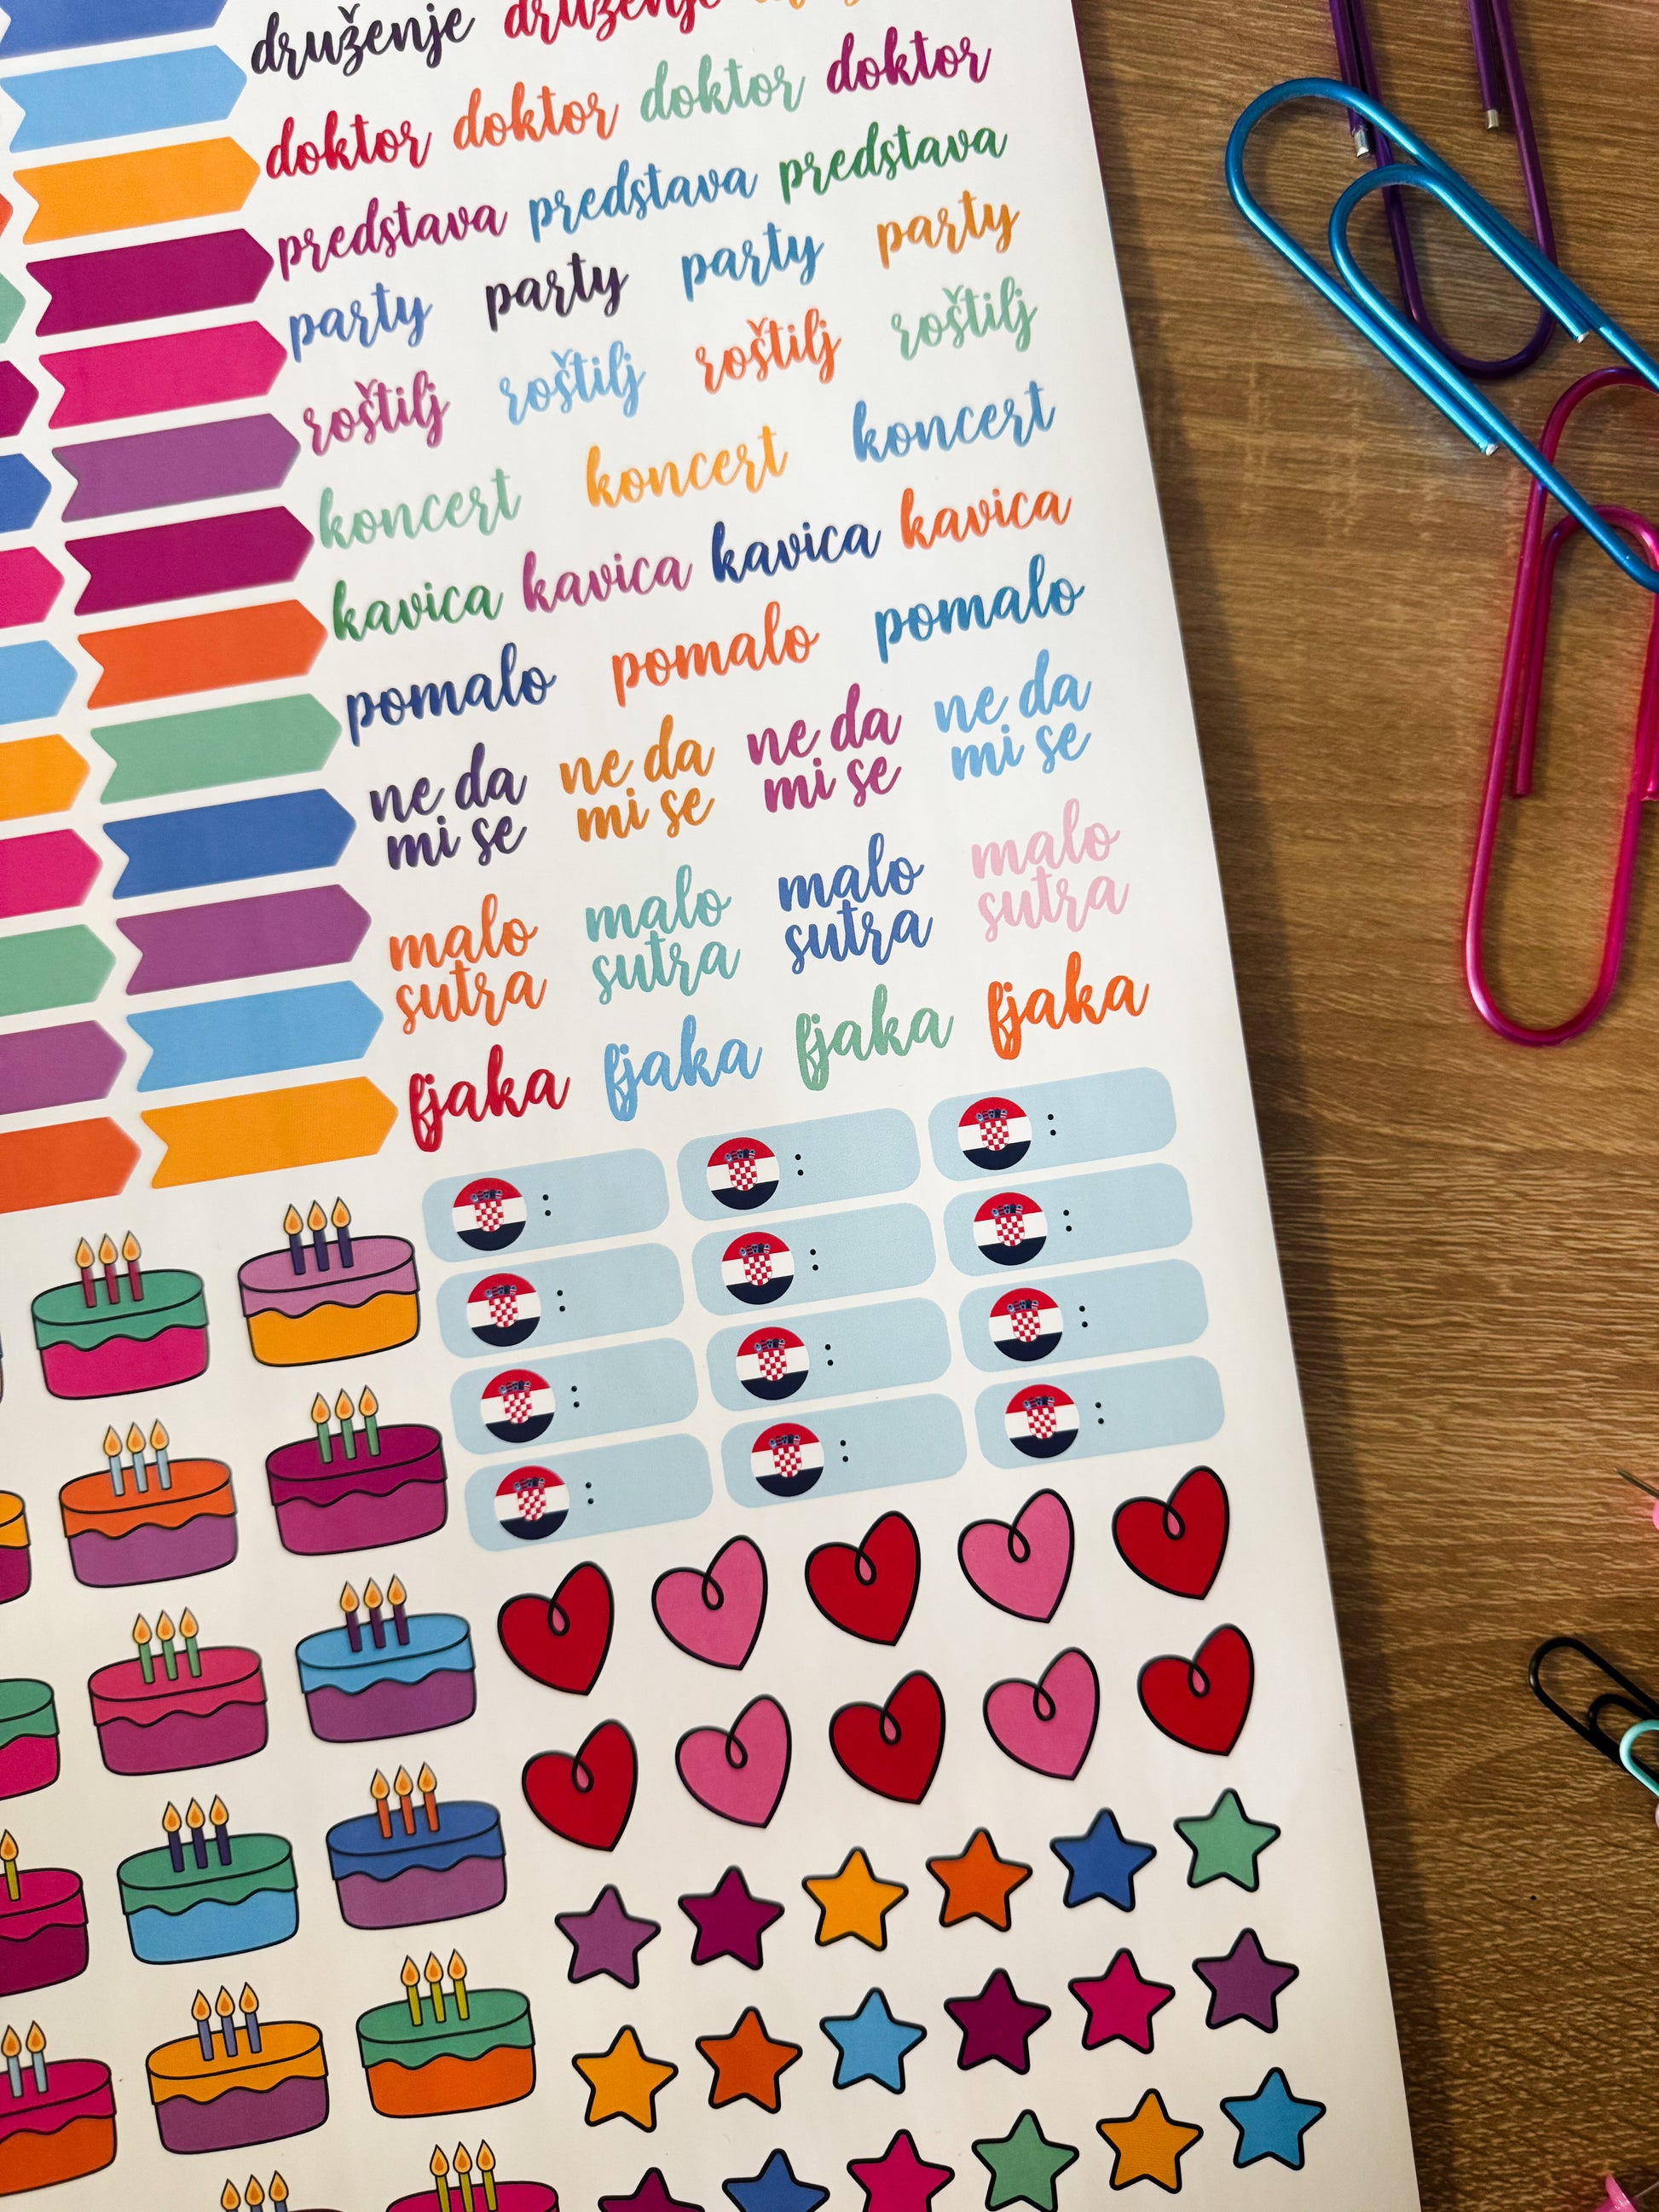 druženje druženje
doktor doktor doktor doktor
predstava predstava predstava
party party party party
roštilj roštilj roštilj roštilj
koncert koncert koncert
kavica kavica kavica kavica
pomalo pomalo pomalo
ne da ne da ne da ne da
mi se mi se mi se mi se
malo malo malo malo
sutra sutra sutra sutra
fjaka fjaka fjaka fjaka
: : :
: : :
: : :
: : :